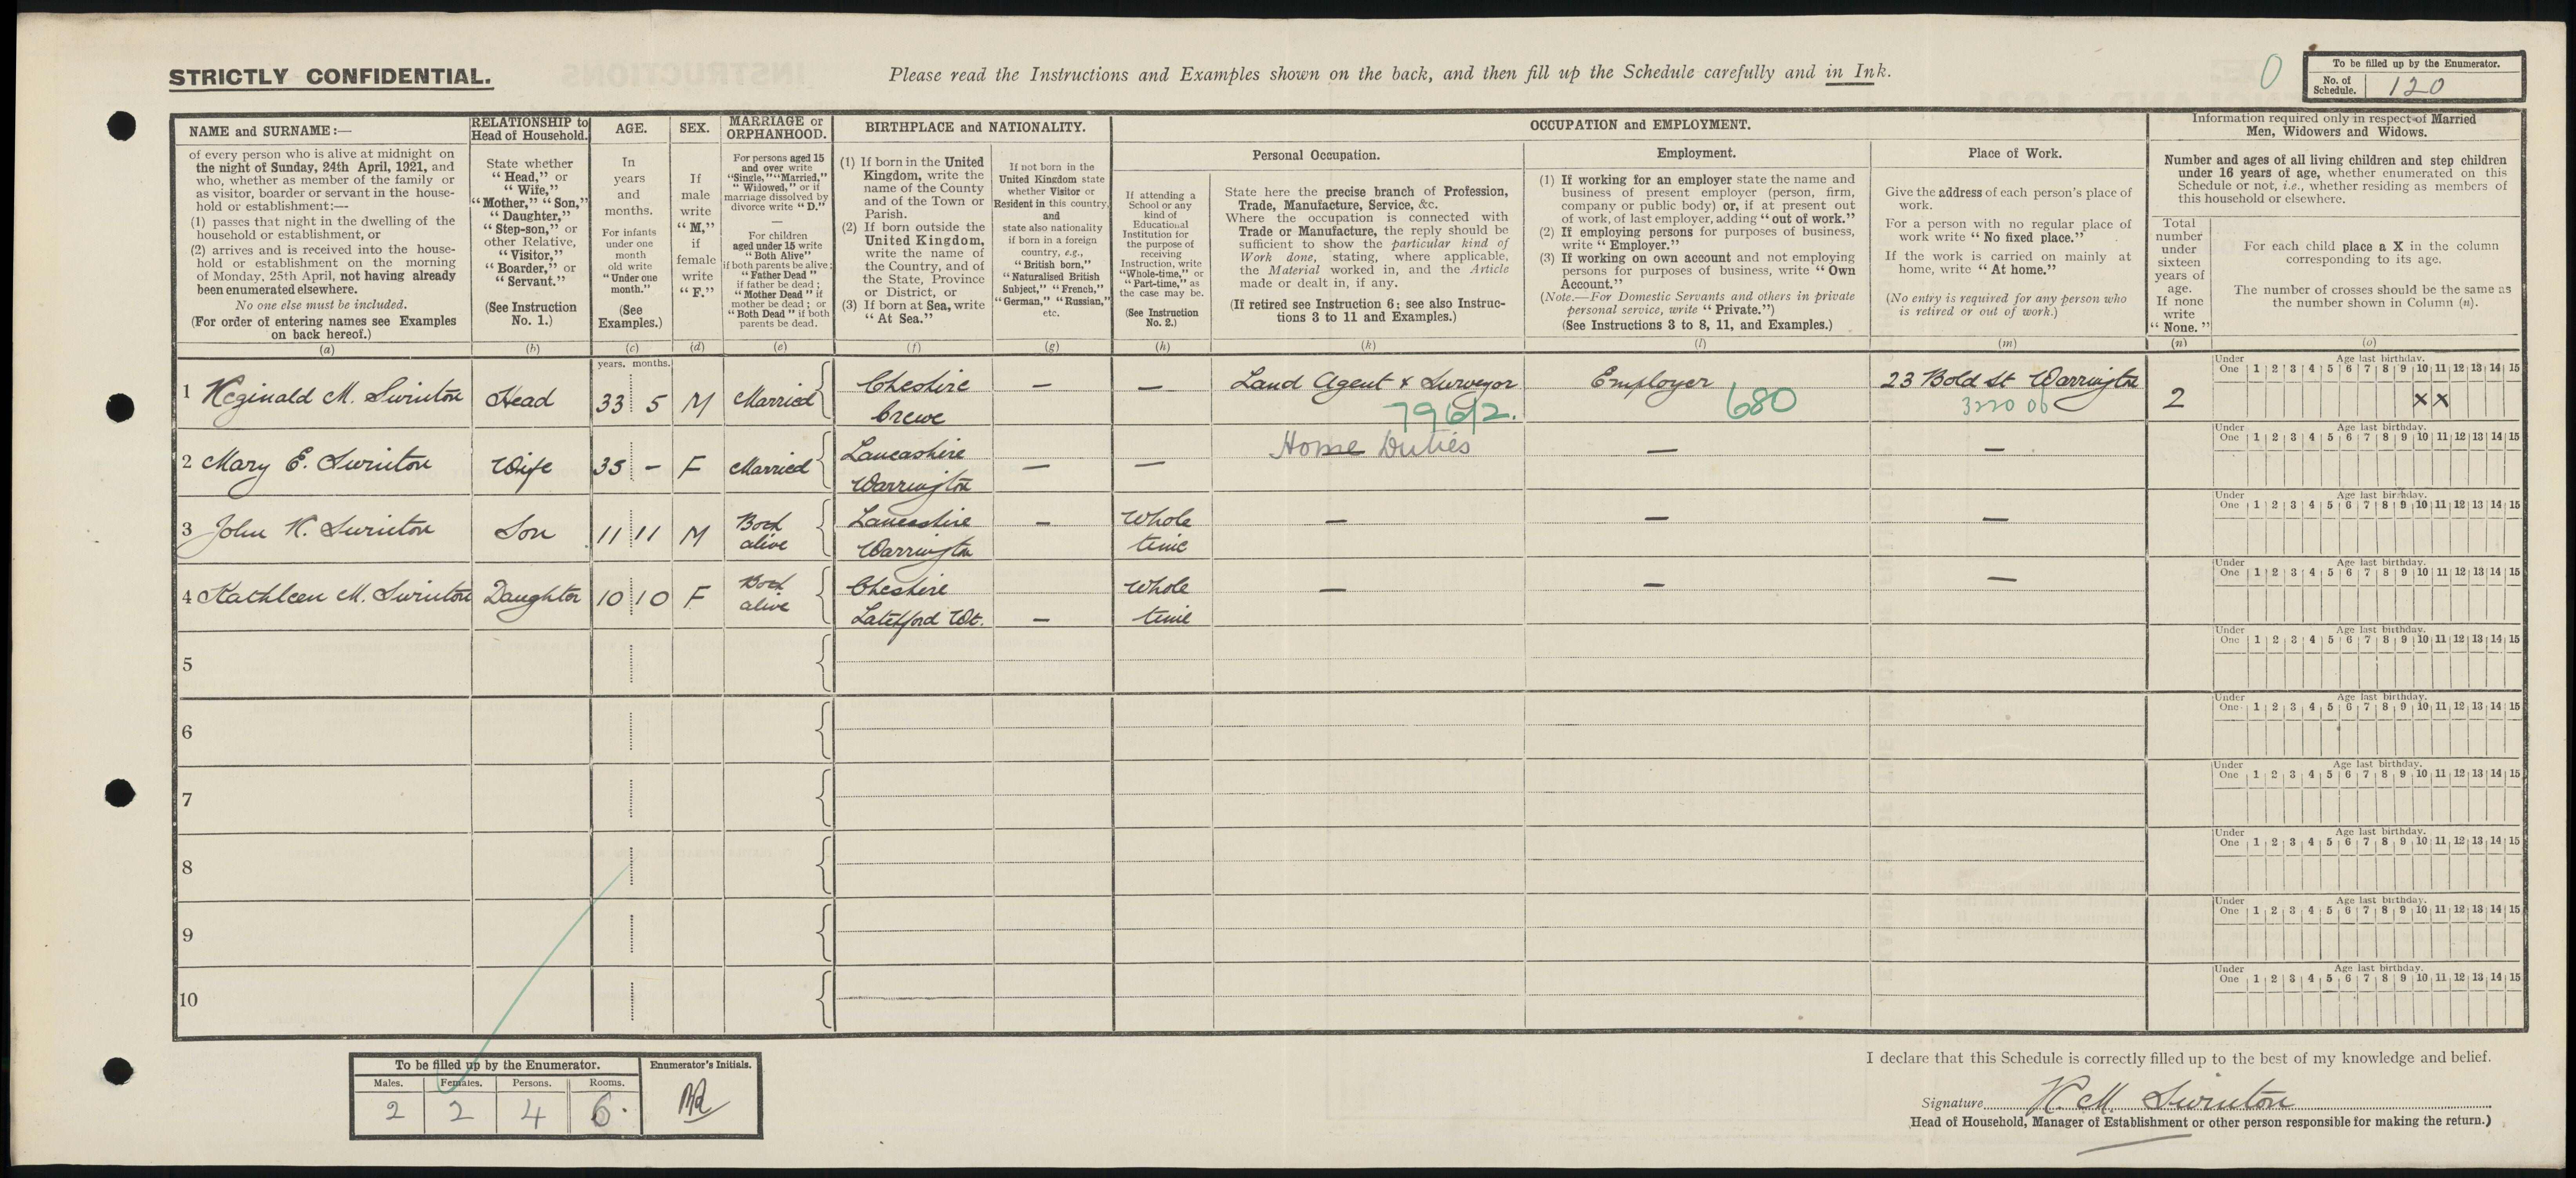 STRICTLY CONFIDENTIAL.
Please read the Instructions and Examples shown on the back, and then fill up the Schedule carefully and in Ink.
0
To be filled up by the Enumerator.
No. of Schedule. 120
NAME and SURNAME:—
of every person who is alive at midnight on
the night of Sunday, 24th April, 1921, and
who, whether as member of the family or
as visitor, boarder or servant in the house-
hold or establishment:—
(1) passes that night in the dwelling of the
household or establishment, or
(2) arrives and is received into the house-
hold or establishment on the morning
of Monday, 25th April, not having already
been enumerated elsewhere.
No one else must be included.
(For order of entering names see Examples
on back hereof.)
(a)
RELATIONSHIP to
Head of Household.
State whether
"Head," or
"Wife,"
"Mother," "Son,"
"Daughter,"
"Step-son," or
other Relative,
"Visitor,"
"Boarder," or
"Servant."
(See Instruction
No. 1.)
(b)
AGE.
In
years
and
months.
For infants
under one
month
old write
"Under one
month."
(See
Examples.)
(c)
SEX.
If
male
write
"M,"
if
female
write
"F."
(d)
MARRIAGE or
ORPHANHOOD.
For persons aged 15
and over write
"Single," "Married,"
"Widowed," or if
marriage dissolved by
divorce write "D."
—
For children
aged under 15 write
"Both Alive"
if both parents be alive;
"Father Dead"
if father be dead;
"Mother Dead" if
mother be dead; or
"Both Dead" if both
parents be dead.
(e)
BIRTHPLACE and NATIONALITY.
(1) If born in the United
Kingdom, write the
name of the County
and of the Town or
Parish.
(2) If born outside the
United Kingdom,
write the name of
the Country, and of
the State, Province
or District, or
(3) If born at Sea, write
"At Sea."
(f)
If not born in the
United Kingdom state
whether Visitor or
Resident in this country,
and
state also nationality
if born in a foreign
country, e.g.,
"British born,"
"Naturalised British
Subject," "French,"
"German," "Russian,"
etc.
(g)
OCCUPATION and EMPLOYMENT.
If attending a
School or any
kind of
Educational
Institution for
the purpose of
receiving
Instruction, write
"Whole-time," or
"Part-time," as
the case may be.
(See Instruction
No. 2.)
(h)
Personal Occupation.
State here the precise branch of Profession,
Trade, Manufacture, Service, &c.
Where the occupation is connected with
Trade or Manufacture, the reply should be
sufficient to show the particular kind of
Work done, stating, where applicable,
the Material worked in, and the Article
made or dealt in, if any.
(If retired see Instruction 6; see also Instruc-
tions 3 to 11 and Examples.)
(k)
Employment.
(1) If working for an employer state the name and
business of present employer (person, firm,
company or public body) or, if at present out
of work, of last employer, adding "out of work."
(2) If employing persons for purposes of business,
write "Employer."
(3) If working on own account and not employing
persons for purposes of business, write "Own
Account."
(Note.—For Domestic Servants and others in private
personal service, write "Private.")
(See Instructions 3 to 8, 11, and Examples.)
(l)
Place of Work.
Give the address of each person's place of
work.
For a person with no regular place of
work write "No fixed place."
If the work is carried on mainly at
home, write "At home."
(No entry is required for any person who
is retired or out of work.)
(m)
Information required only in respect of Married
Men, Widowers and Widows.
Number and ages of all living children and step children
under 16 years of age, whether enumerated on this
Schedule or not, i.e., whether residing as members of
this household or elsewhere.
Total
number
under
sixteen
years of
age.
If none
write
"None."
(n)
For each child place a X in the column
corresponding to its age.
The number of crosses should be the same as
the number shown in Column (n).
(o)
years. months.
Under One Age last birthday. 1 2 3 4 5 6 7 8 9 10 11 12 13 14 15
1 Reginald M. Swinton Head 33 5 M Married Cheshire Crewe — — Land Agent & Surveyor 796/2. Employer 680 23 Bold St Warrington 3220 06 2 x x
Under One Age last birthday. 1 2 3 4 5 6 7 8 9 10 11 12 13 14 15
2 Mary E. Swinton Wife 35 – F Married Lancashire Warrington — — Home Duties — —
Under One Age last birthday. 1 2 3 4 5 6 7 8 9 10 11 12 13 14 15
3 John R. Swinton Son 11 11 M Both alive Lancashire Warrington — Whole time — — —
Under One Age last birthday. 1 2 3 4 5 6 7 8 9 10 11 12 13 14 15
4 Kathleen M. Swinton Daughter 10 10 F Both alive Cheshire Latchford Wt. — Whole time — — —
Under One Age last birthday. 1 2 3 4 5 6 7 8 9 10 11 12 13 14 15
5
Under One Age last birthday. 1 2 3 4 5 6 7 8 9 10 11 12 13 14 15
6
Under One Age last birthday. 1 2 3 4 5 6 7 8 9 10 11 12 13 14 15
7
Under One Age last birthday. 1 2 3 4 5 6 7 8 9 10 11 12 13 14 15
8
Under One Age last birthday. 1 2 3 4 5 6 7 8 9 10 11 12 13 14 15
9
Under One Age last birthday. 1 2 3 4 5 6 7 8 9 10 11 12 13 14 15
10
To be filled up by the Enumerator.
Males. Females. Persons. Rooms.
2 2 4 6.
Enumerator's Initials.
I declare that this Schedule is correctly filled up to the best of my knowledge and belief.
Signature R. M. Swinton
Head of Household, Manager of Establishment or other person responsible for making the return.)